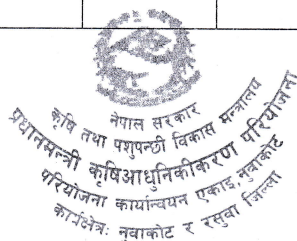 नेपाल सरकार
कृषि तथा पशुपन्छी विकास मन्त्रालय
प्रधानमन्त्री कृषि आधुनिकीकरण परियोजना
परियोजना कार्यान्वयन एकाइ, नुवाकोट
कार्यक्षेत्रः नुवाकोट र रसुवा जिल्ला